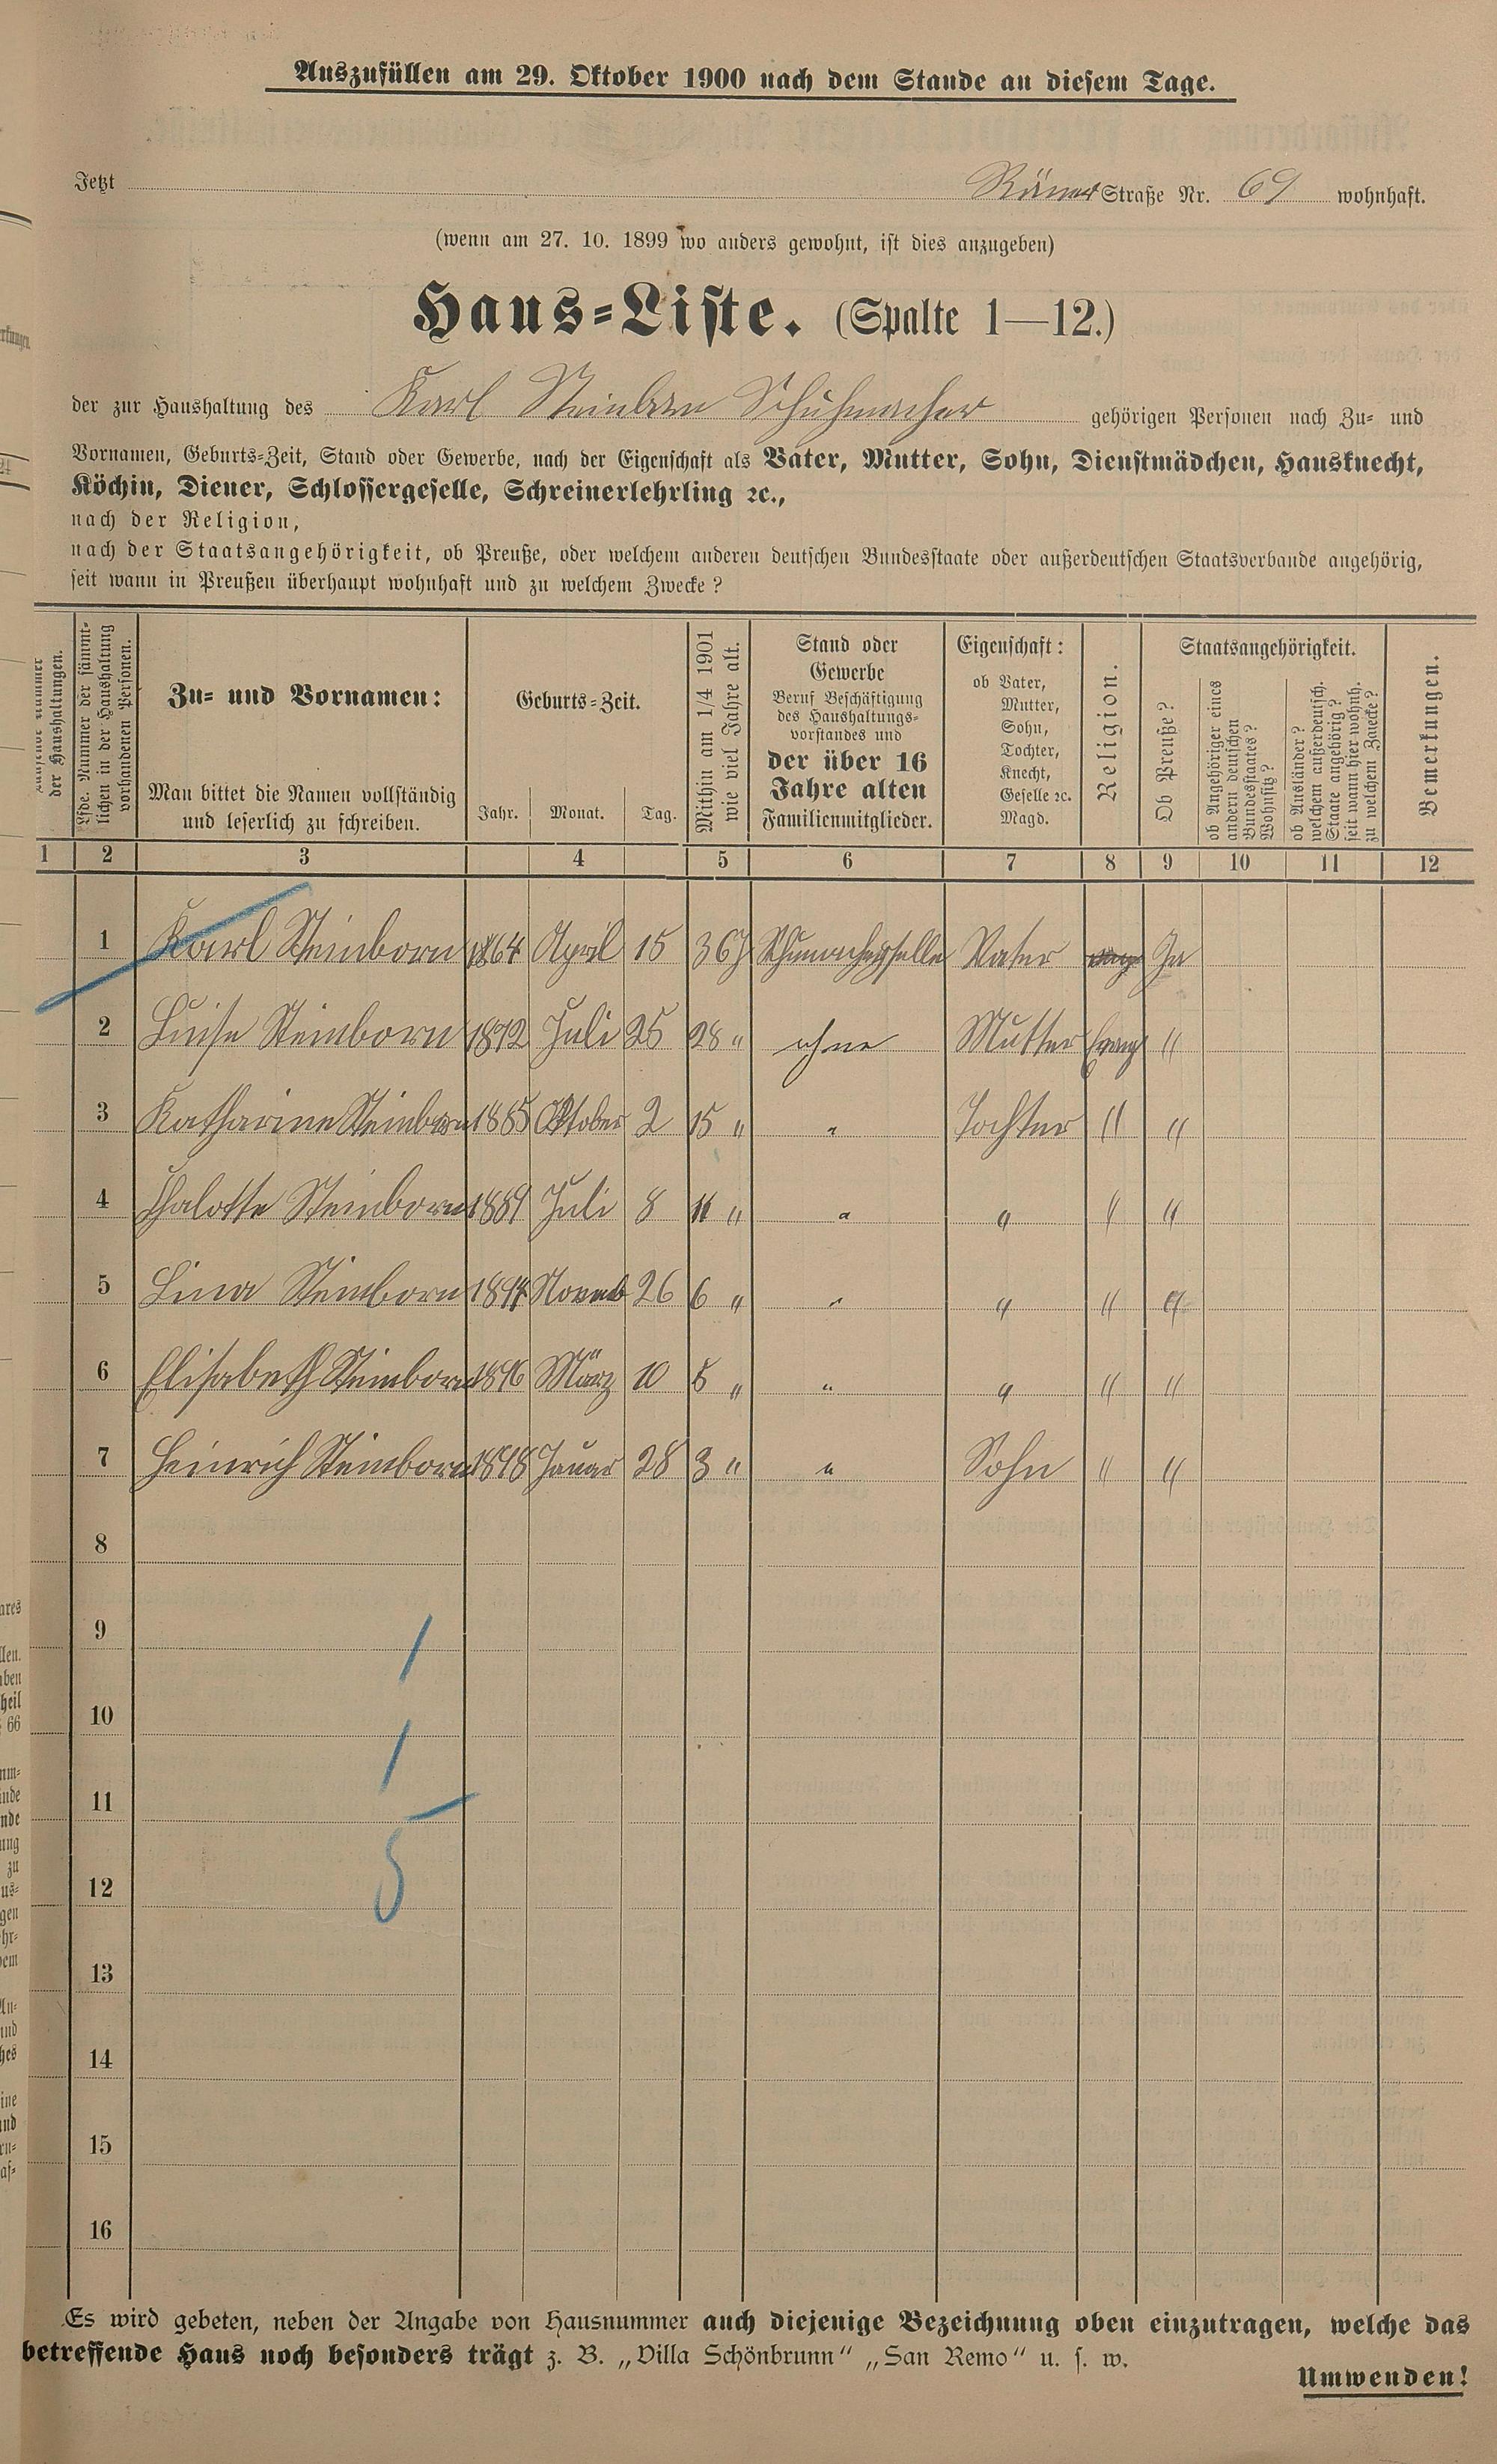 Auszufüllen am 29. Oktober 1900 nach dem Stande an diesem Tage.
Jetzt Straße Nr. 69 wohnhaft.
(wenn am 27. 10. 1899 wo anders gewohnt, ist dies anzugeben)
Haus-Liste. (Spalte 1—12.)
der zur Haushaltung des Karl Steinborn Schuhmacher gehörigen Personen nach Zu- und
Vornamen, Geburts-Zeit, Stand oder Gewerbe, nach der Eigenschaft als Vater, Mutter, Sohn, Dienstmädchen, Hausknecht,
Köchin, Diener, Schlossergeselle, Schreinerlehrling ꝛc.,
nach der Religion,
nach der Staatsangehörigkeit, ob Preuße, oder welchem anderen deutschen Bundesstaate oder außerdeutschen Staatsverbande angehörig,
seit wann in Preußen überhaupt wohnhaft und zu welchem Zwecke?
der Haushaltungen.
Lfde. Nummer der sämmt-
lichen in der Haushaltung
vorhandenen Personen.
Zu- und Vornamen:
Man bittet die Namen vollständig
und leserlich zu schreiben.
Geburts-Zeit.
Jahr. Monat. Tag.
Mithin am 1/4 1901
wie viel Jahre alt.
Stand oder
Gewerbe
Beruf Beschäftigung
des Haushaltungs-
vorstandes und
der über 16
Jahre alten
Familienmitglieder.
Eigenschaft:
ob Vater,
Mutter,
Sohn,
Tochter,
Knecht,
Geselle ꝛc.
Magd.
Religion.
Staatsangehörigkeit.
Ob Preuße?
ob Angehöriger eines
andern deutschen
Bundesstaates?
Wohnsitz?
ob Ausländer?
welchem außerdeutsch.
Staate angehörig?
seit wann hier wohnh.
zu welchem Zwecke?
Bemerkungen.
1 2 3 4 5 6 7 8 9 10 11 12
1 Karl Steinborn 1864 April 15 36 J Vater Ja
2 Luise Steinborn 1872 Juli 25 28 " ohne Mutter Evang "
3 Katharine Steinborn 1885 Oktober 2 15 " " Tochter " "
4 Chalotte Steinborn 1889 Juli 8 11 " " " " "
5 Lina Steinborn 1894 Novmb 26 6 " " " " "
6 Elisabeth Steinborn 1896 März 10 5 " " " " "
7 Heinrich Steinborn 1898 Januar 28 3 " " Sohn " "
8
9
10
11
12
13
14
15
16
1
1
5
Es wird gebeten, neben der Angabe von Hausnummer auch diejenige Bezeichnung oben einzutragen, welche das
betreffende Haus noch besonders trägt z. B. „Villa Schönbrunn“ „San Remo“ u. s. w.
Umwenden!